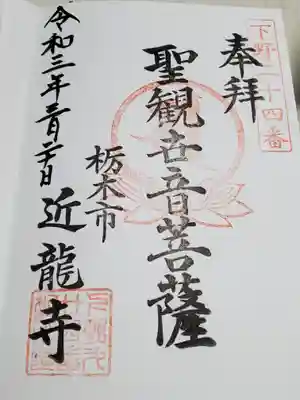 下野二十四番
奉拝
聖観世音菩薩
栃木市
近龍寺
令和三年三月二十日